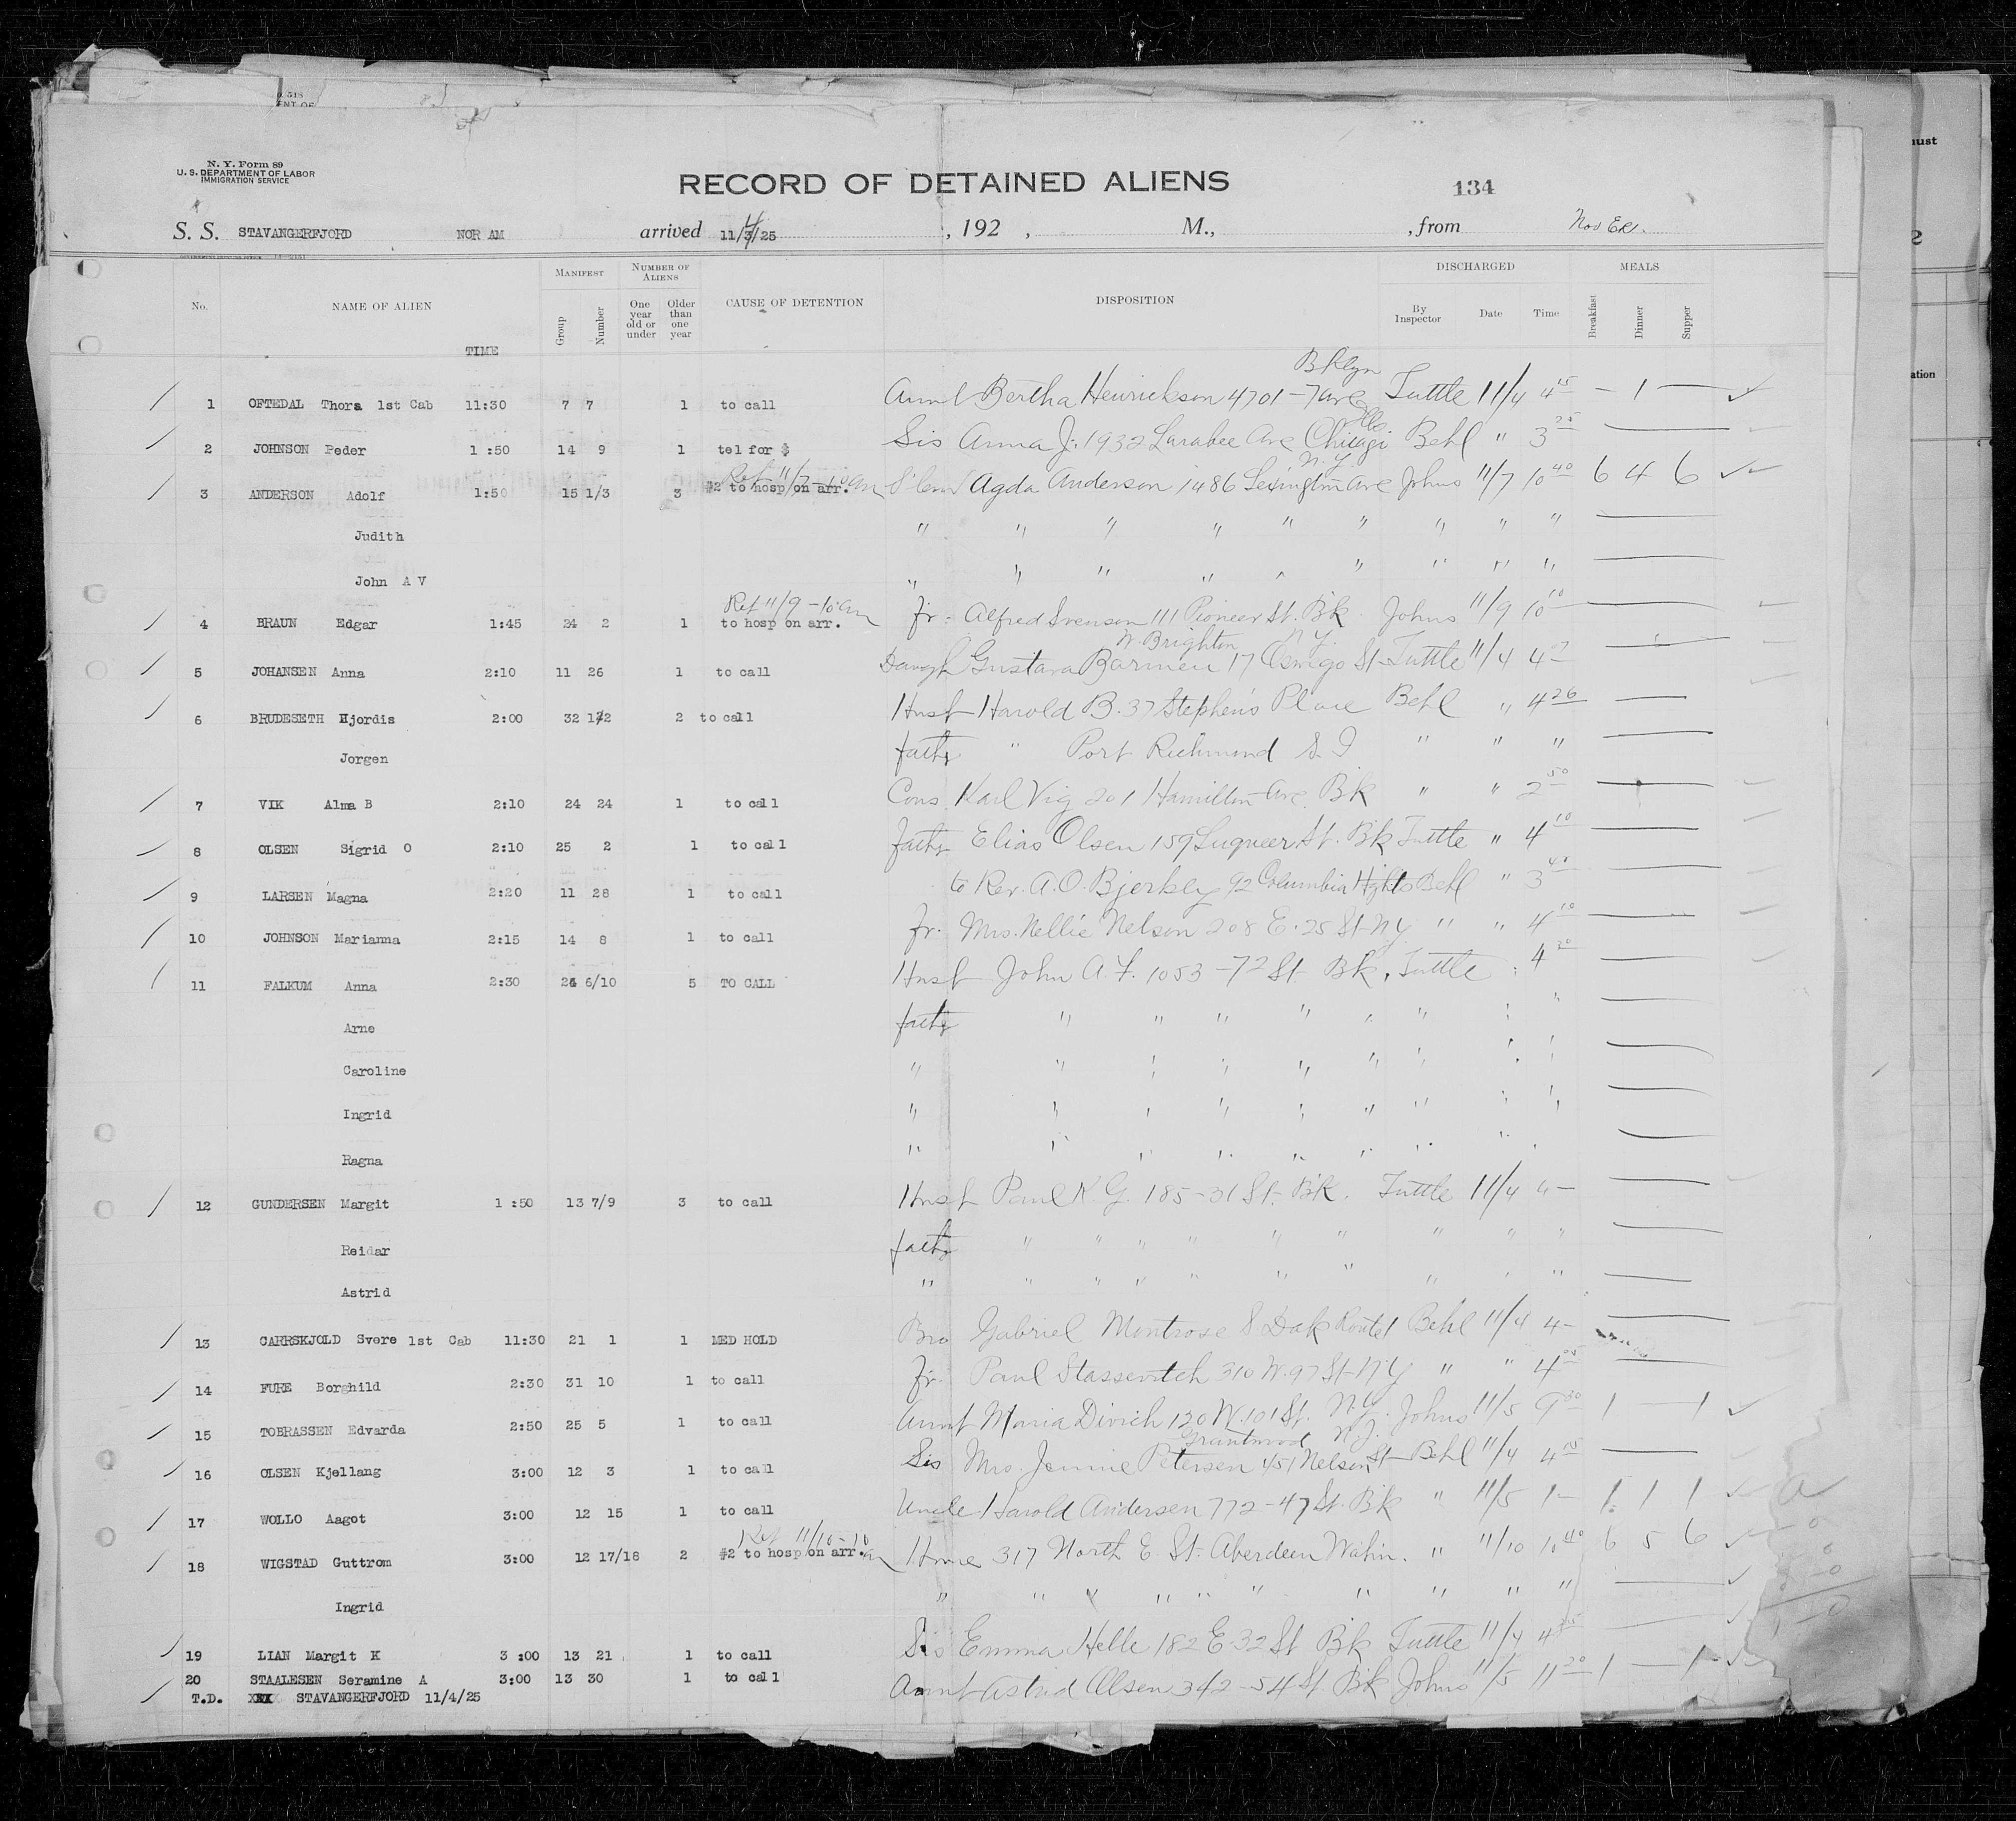 N. Y. Form 89
U. S. DEPARTMENT OF LABOR
IMMIGRATION SERVICE
RECORD OF DETAINED ALIENS 134
S. S. STAVANGERFJORD NOR AM arrived 11/4/25, 192 , M., , from
No. NAME OF ALIEN TIME MANIFEST Group Number NUMBER OF ALIENS One year old or under Older than one year CAUSE OF DETENTION DISPOSITION DISCHARGED By Inspector Date Time MEALS Breakfast Dinner Supper
Bklyn
1 OFTEDAL Thora 1st Cab 11:30 7 7 1 to call Aunt Bertha Henrickson 4701-7 ave Tuttle 11/4 4 15 — 1 —
Ills
2 JOHNSON Peder 1 :50 14 9 1 tel for $ Sis Anna J. 1932 Larabee Ave Chicago Behl " 3 25
Ret 11/7-10 am N.Y.
3 ANDERSON Adolf 1:50 15 1/3 3 #2 to hosp on arr. Agda Anderson 1486 Lexington Ave Johns 11/7 10 40 6 4 6
Judith " " " " " " " " "
John A V " " " " " " " " "
Ret 11/9-10 am
4 BRAUN Edgar 1:45 24 2 1 to hosp on arr. fr. Alfred Svenson 111 Pioneer St. Bk Johns 11/9 10 10
W. Brighton N.Y.
5 JOHANSEN Anna 2:10 11 26 1 to call Daugh Gustava Barmen 17 Oswego St Tuttle 11/4 4 07
6 BRUDESETH Hjordis 2:00 32 1/2 2 to call Husb Harold B. 37 Stephens Place Behl " 4 26
Jorgen fath " Port Richmond S. I " " "
7 VIK Alma B 2:10 24 24 1 to call Cons Karl Vig 201 Hamilton ave. Bk " " 2 50
8 OLSEN Sigrid O 2:10 25 2 1 to call fath Elias Olsen 159 Luqueer St. Bk Tuttle " 4 10
9 LARSEN Magna 2:20 11 28 1 to call to Rev. A.O. Bjerkey 92 Columbia Hghts Behl " 3 40
10 JOHNSON Marianna 2:15 14 8 1 to call fr. Mrs. Nellie Nelson 208 E. 25 St NY " " 4 10
11 FALKUM Anna 2:30 24 6/10 5 TO CALL Husb John A. F. 1053-72 St Bk. Tuttle " 4 20
Arne fath " " " " " " " "
Caroline " " " " " " " " "
Ingrid " " " " " " " " "
Ragna " " " " " " " " "
12 GUNDERSEN Margit 1 :50 13 7/9 3 to call Husb Paul K. G. 185-31 St. Bk. Tuttle 11/4 4 —
Reidar fath " " " " " " " " "
Astrid " " " " " " " " " "
13 CARRSKJOLD Svere 1st Cab 11:30 21 1 1 MED HOLD Bro Gabriel Montrose S. Dak Route 1 Behl 11/4 4 —
14 FURE Borghild 2:30 31 10 1 to call fr. Paul Stassevitch 310 W. 97 St NY " " 4 05
15 TOBRASSEN Edvarda 2:50 25 5 1 to call Aunt Maria Divich 120 W. 101 St. N.Y. Johns 11/5 9 30 1 — 1
Grantwood N.J.
16 OLSEN Kjellang 3:00 12 3 1 to call Sis Mrs. Jennie Petersen 451 Nelson St Behl 11/4 4 15
17 WOLLO Aagot 3:00 12 15 1 to call Uncle Harold Andersen 772-47 St. Bk " 11/5 1 — 1 1 1
Ret 11/10-10 am
18 WIGSTAD Guttrom 3:00 12 17/18 2 #2 to hosp on arr. Home 317 North E. St. Aberdeen Wahin. " 11/10 10 40 6 5 6
Ingrid " " " " " " " " " "
19 LIAN Margit K 3 :00 13 21 1 to call Sis Emma Helle 182 E. 32 St Bk Tuttle 11/4 4
20 STAALESEN Seramine A 3:00 13 30 1 to call Aunt Astrid Olsen 342-54 St. Bk Johns 11/5 11 20 1 — 1
T.D. XXX STAVANGERFJORD 11/4/25